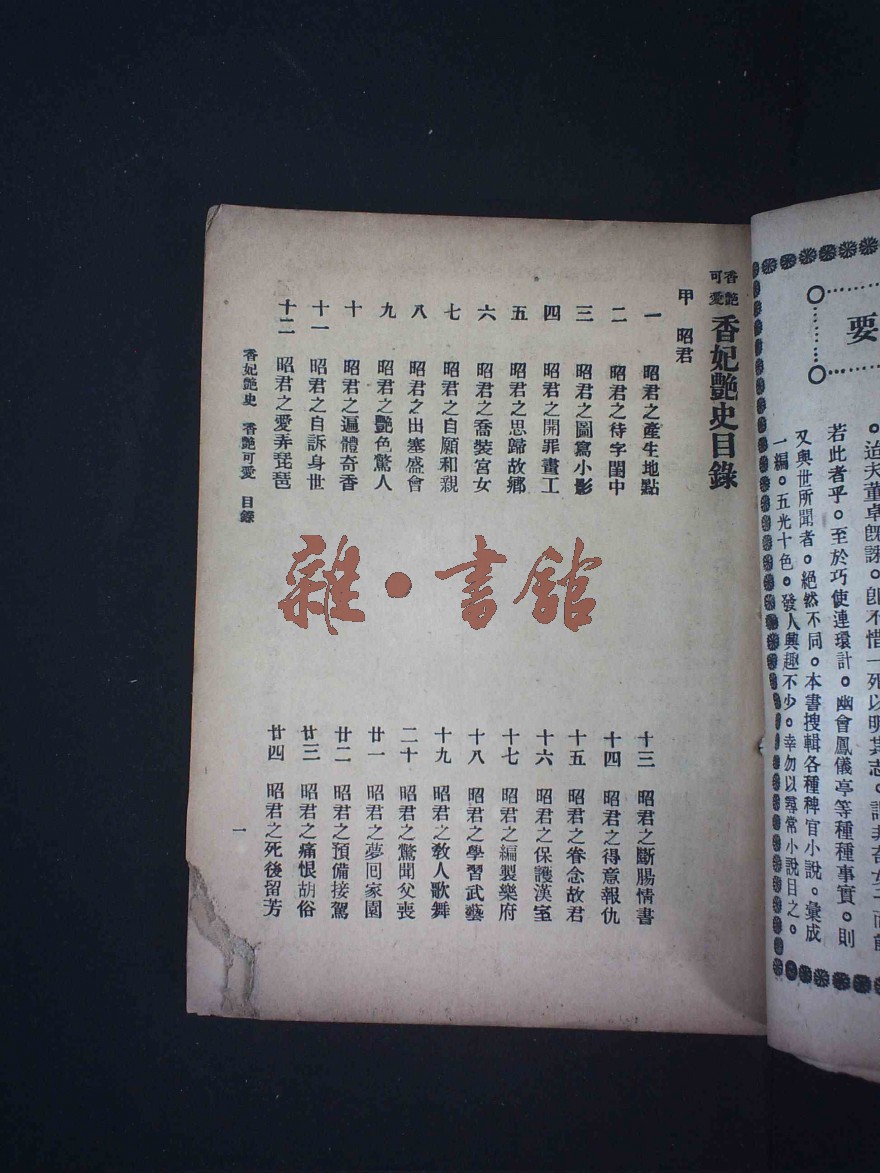 要
。迨夫董卓旣誅。卽不惜一死以明其志。
若此者乎。至於巧使連環計。幽會鳳儀亭等種種事實。則
又與世所聞者。絕然不同。本書搜輯各種稗官小說。彙成
一編。五光十色。發人興趣不少。幸勿以尋常小說目之。
香艷可愛 香妃艷史目錄
甲 昭君
一 昭君之產生地點
二 昭君之待字閨中
三 昭君之圖寫小影
四 昭君之開罪畫工
五 昭君之思歸故鄉
六 昭君之喬裝宮女
七 昭君之自願和親
八 昭君之出塞盛會
九 昭君之艷色驚人
十 昭君之遍體奇香
十一 昭君之自訴身世
十二 昭君之愛弄琵琶
十三 昭君之斷腸情書
十四 昭君之得意報仇
十五 昭君之眷念故君
十六 昭君之保護漢室
十七 昭君之編製樂府
十八 昭君之學習武藝
十九 昭君之敎人歌舞
二十 昭君之驚聞父喪
廿一 昭君之夢回家園
廿二 昭君之預備接駕
廿三 昭君之痛恨胡俗
廿四 昭君之死後留芳
香妃艷史 香艷可愛 目錄
一
雜·書館